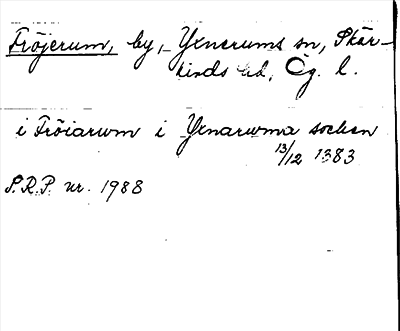 Fröjerum, by, Yxnerums sn, Skär-
kinds hd, Ög. l.
i Fröiarum i Yxnarwma sochen
13/12 1383
S.R.P. nr. 1988